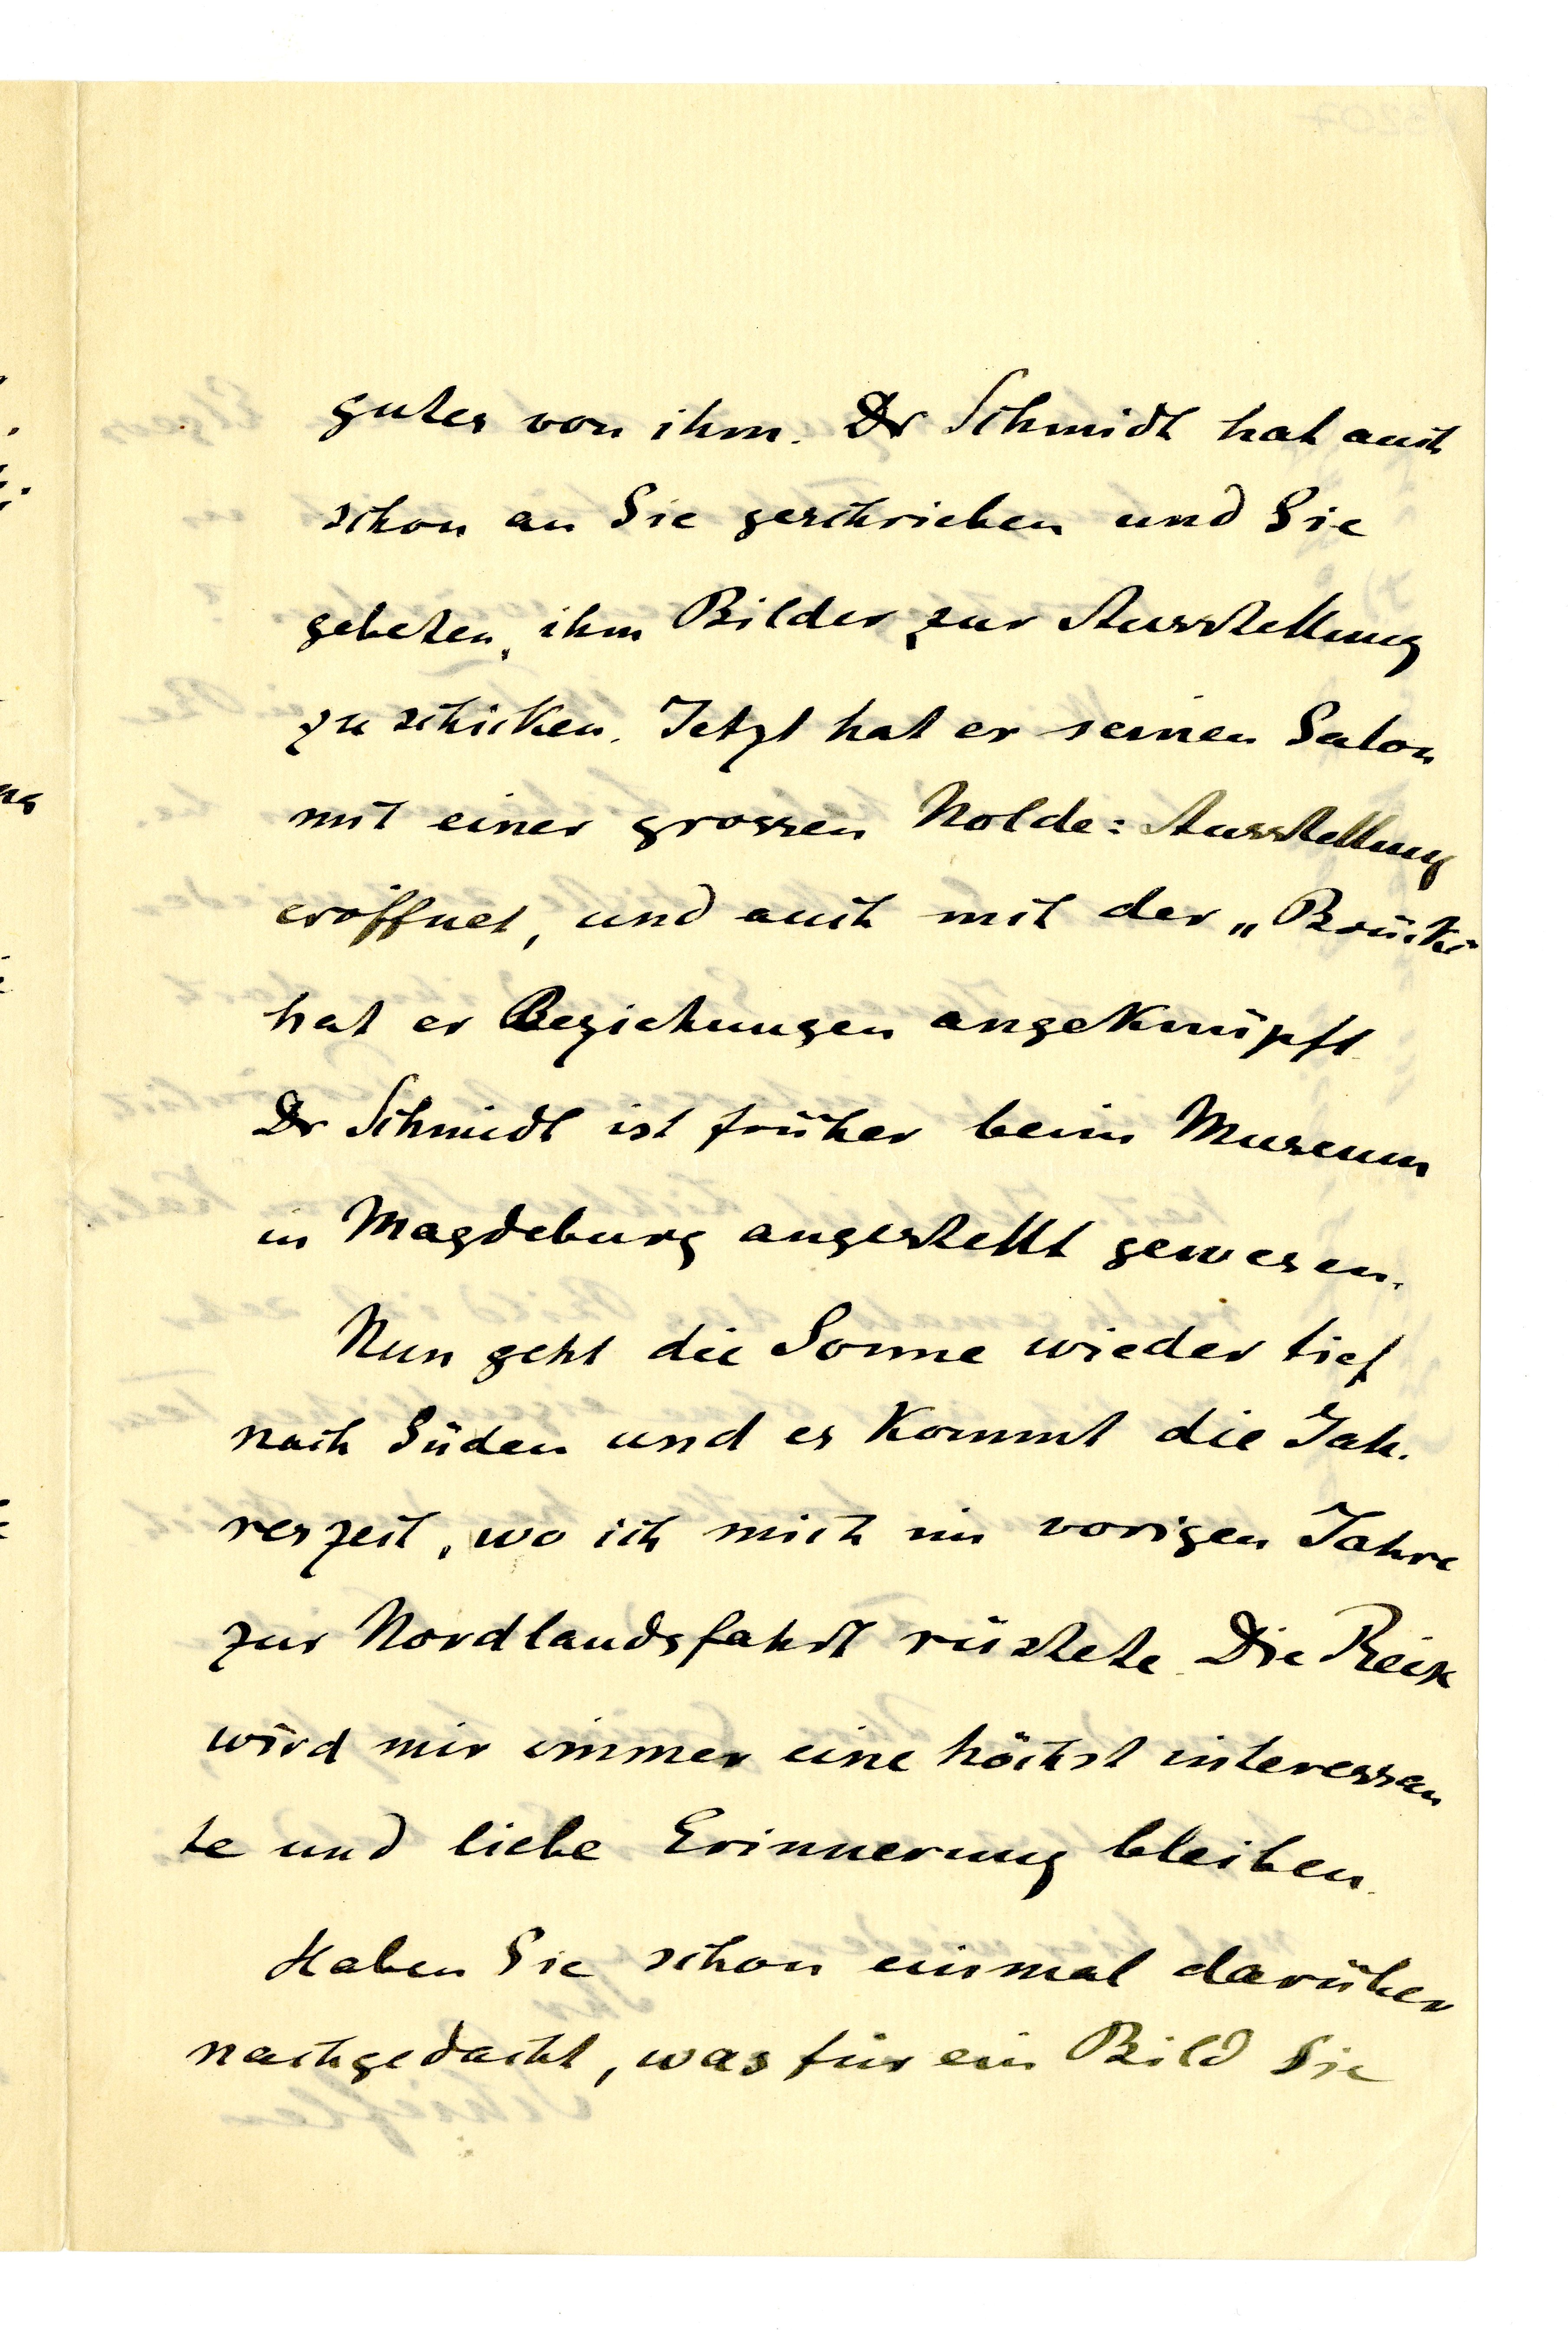 gutes von ihm. Dr Schmidt hat auch
schon an Sie geschrieben und Sie
gebeten, ihm Bilder zur Ausstellung
zu schicken. Jetzt hat er seinen Salon
mit einer grossen Nolde=Ausstellung
eröffnet, und auch mit der „Brücke"
hat er Beziehungen angeknüpft.
Dr Schmidt ist früher beim Museum
in Magdeburg angestellt gewesen.
Nun geht die Sonne wieder tief
nach Süden und es kommt die Jah-
reszeit, wo ich mich im vorigen Jahre
zur Nordlandsfahrt rüstete. Die Reise
wird mir immer eine höchst interessan
te und liebe Erinnerung bleiben.
Haben Sie schon einmal darüber
nachgedacht, was für ein Bild Sie